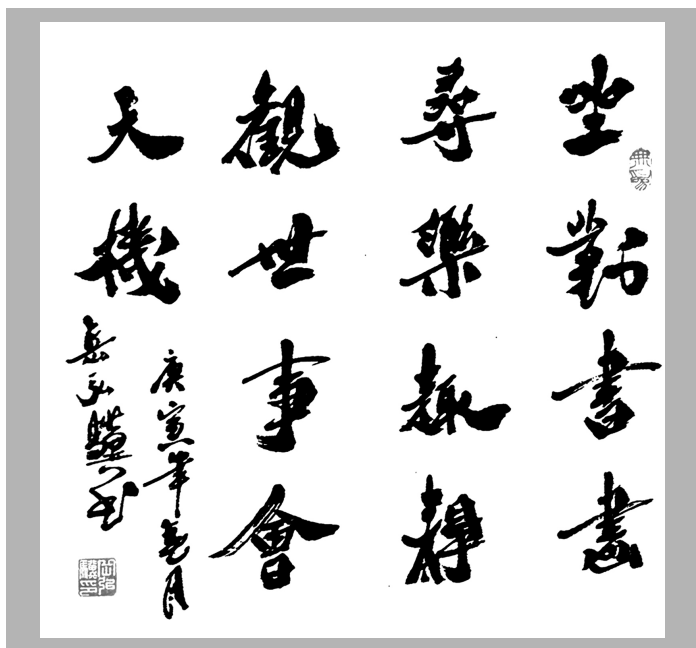 坐對書畫
尋樂趣靜
觀世事會
天機
庚寅年
月